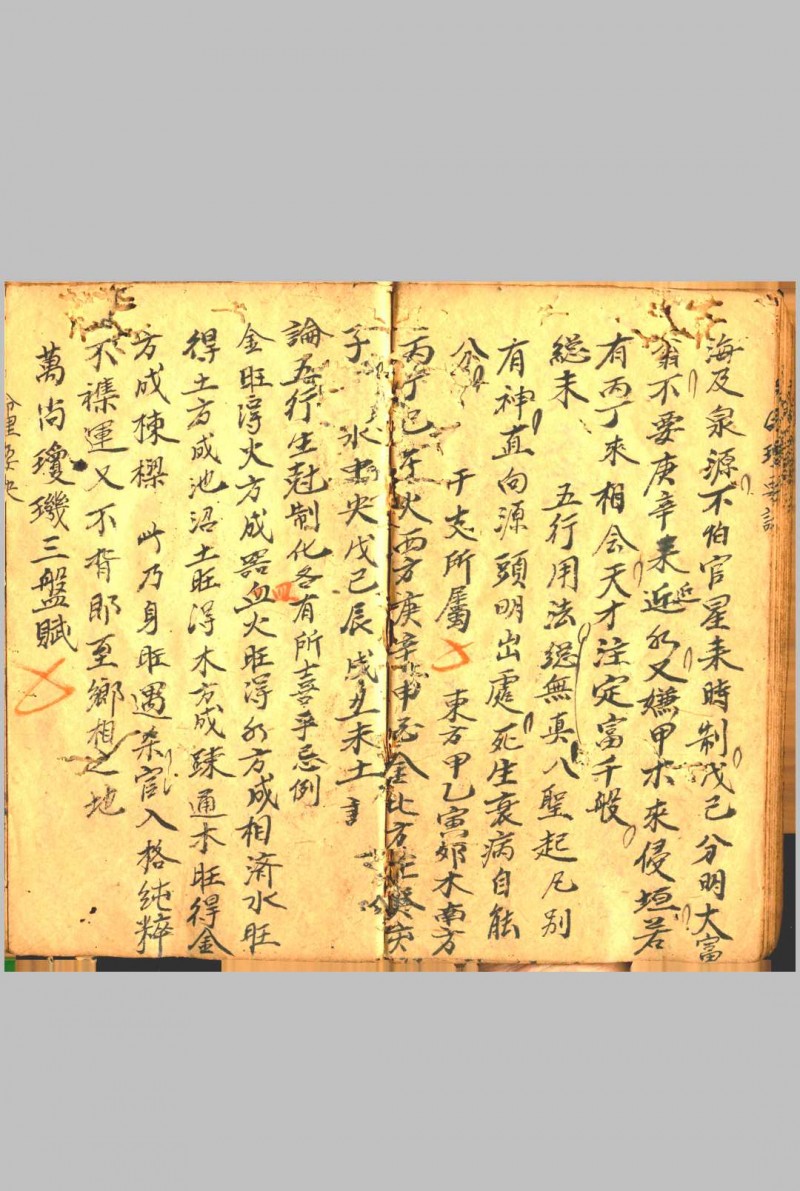 海及泉源不怕官星来時制戊己分明大富
翁不要庚辛来近水又嫌甲木來侵垣若
有丙丁來相会天才注定富千般
総末 五行用法總無真八聖起凡别
有神直向源頭明出處死生衰病自能
分 干支所屬 東方甲乙寅郊木南方
丙丁巳午火西方庚辛申酉金北方壬癸亥
子 水中央戊己辰戌丑未土
論五行生尅制化各有所喜乎忌例
金旺淂火方成器皿火旺得水方成相済水旺
得土方成池沼土旺淂木方成疎通木旺得金
方成棟樑 此乃身旺遇杀官入格純粹
不襍運又不背即至鄉相之地
萬尚瓊璣三盤賦